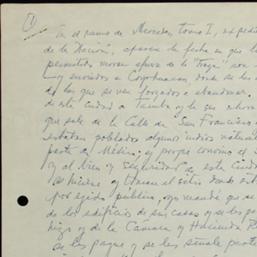 (1)
En el ramo de Mercedes, tomo I, expedi
de la Nación", aparece la fecha en que l
permitido morar fuera de la "Traza" son
y enviados a Coyohuacan, donde se les d
el los que se ven forzados a abandonar.
de esta ciudad a Tacuba y le
que sale de la Calle de San Francisco
estaban poblados algunos indios natural
parte de México, y porque conviene al
y al bien y seguridad de esta ciudad
se midiese y trazase el sitio donde
por ejido público, y mandé que se
de los edificios de sus casas y se les pa
hizo y de la Cámara y Hacienda R
se les pague y se les señale parte